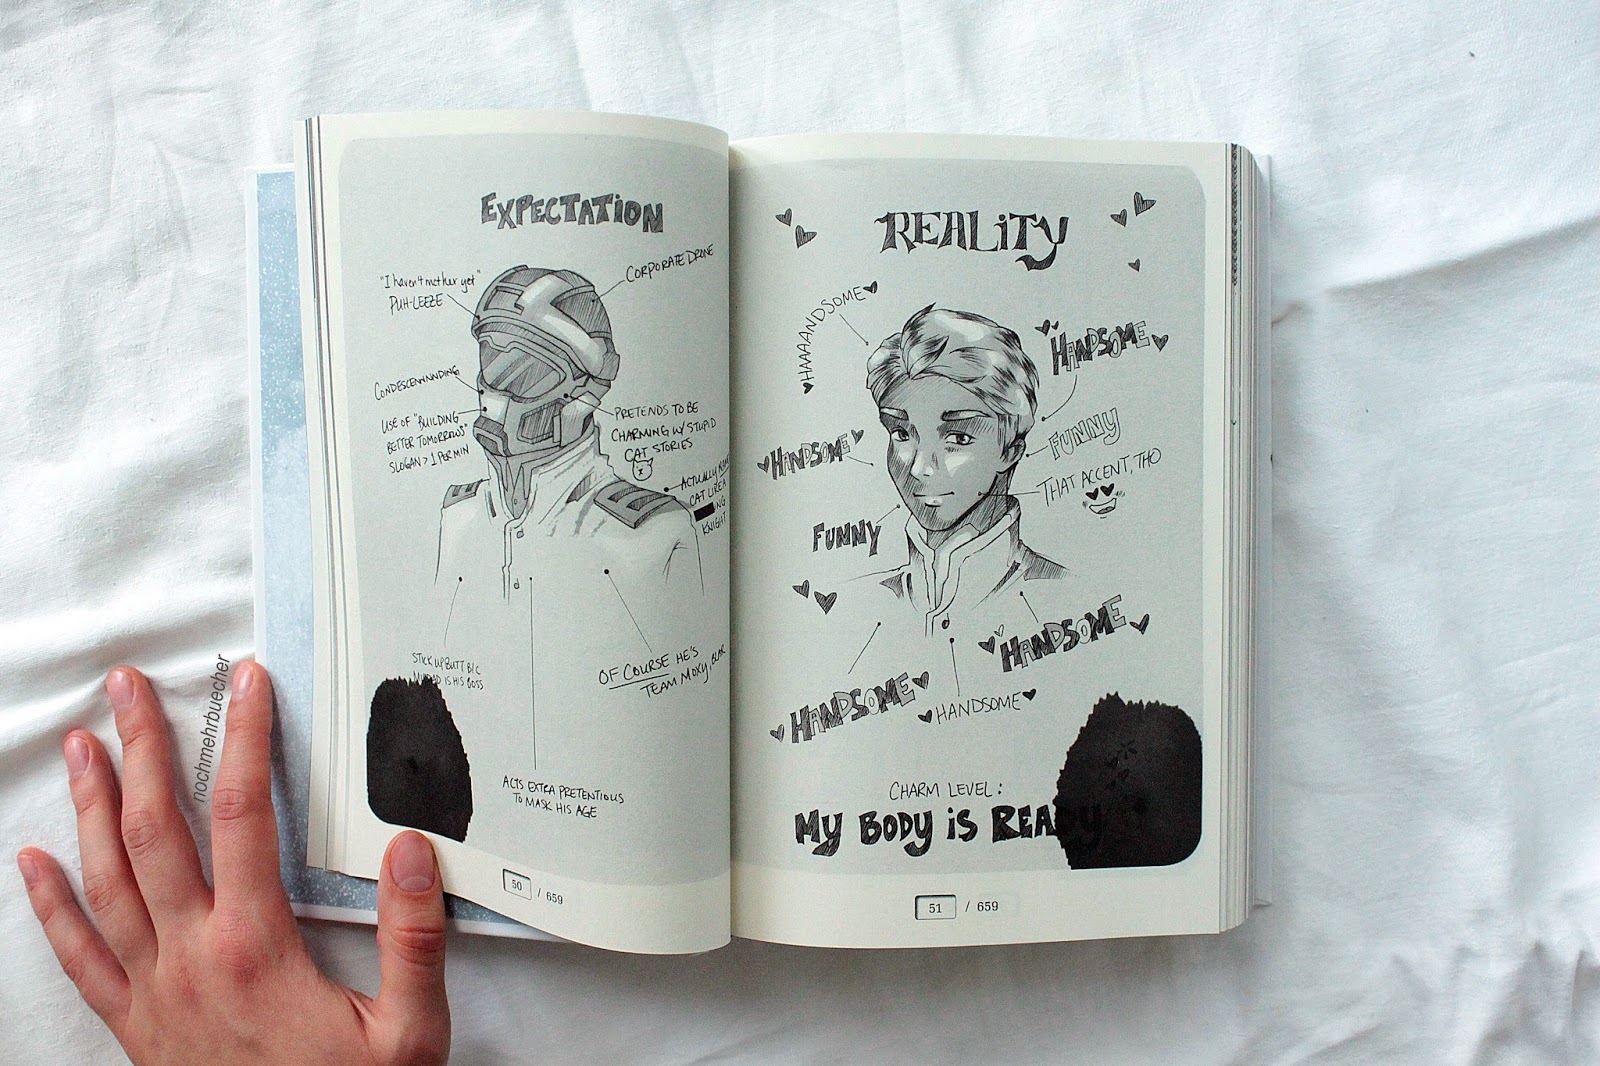 EXPECTATION
"I haven't met her yet"
PUH-LEEZE
CORPORATE DRONE
CONDESCENNNDING
USE OF "BUILDING
BETTER TOMORROWS"
SLOGAN > 1 PER MIN
PRETENDS TO BE
CHARMING W/ STUPID
CAT STORIES
ACTUALLY
CAT LIKE A
NG
KNIGHT
STICK UP BUTT B/C
DAD IS HIS BOSS
OF COURSE HE'S
TEAM MOXY, BLAR
ACTS EXTRA PRETENTIOUS
TO MASK HIS AGE
50 / 659
REALITY
HAAAANDSOME
HANDSOME
HANDSOME
FUNNY
THAT ACCENT, THO
FUNNY
HANDSOME
HANDSOME
HANDSOME
CHARM LEVEL:
MY BODY IS READY
51 / 659
nochmehrbuecher